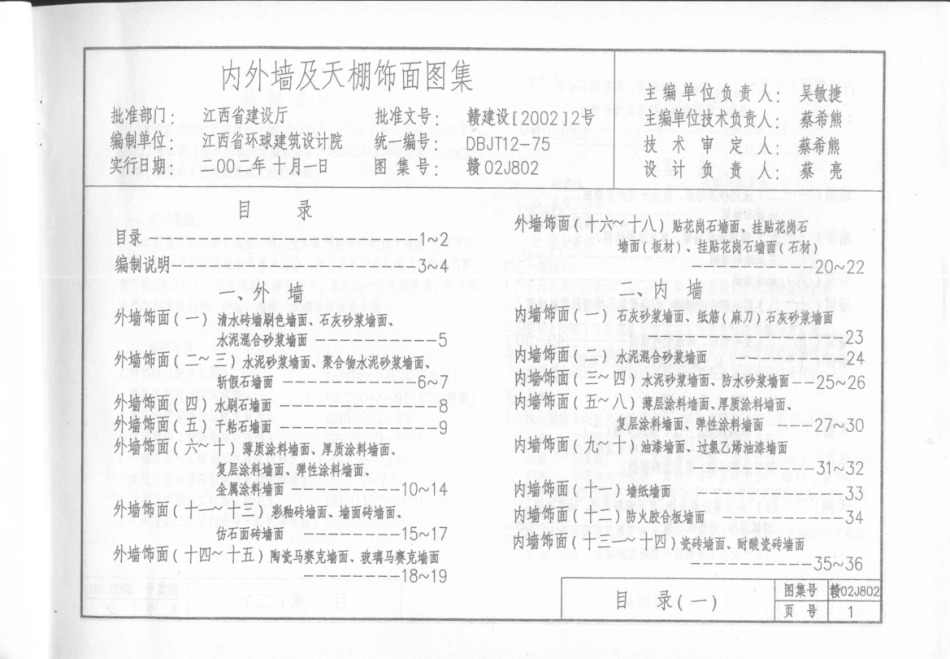 内外墙及天棚饰面图集
批准部门： 江西省建设厅 批准文号： 赣建设[2002]2号
编制单位： 江西省环球建筑设计院 统一编号： DBJT12-75
实行日期： 二00二年十月一日 图集号： 赣02J802
主编单位负责人： 吴敏捷
主编单位技术负责人： 蔡希熊
技术审定人： 蔡希熊
设计负责人： 蔡亮
目 录
目录------------------1~2
编制说明----------------3~4
一、外墙
外墙饰面(一) 清水砖墙刷色墙面、石灰砂浆墙面、
水泥混合砂浆墙面 --------5
外墙饰面(二~三) 水泥砂浆墙面、聚合物水泥砂浆墙面、
斩假石墙面 ---------6~7
外墙饰面(四) 水刷石墙面 ----------8
外墙饰面(五) 干粘石墙面 ----------9
外墙饰面(六~十) 薄质涂料墙面、厚质涂料墙面、
复层涂料墙面、弹性涂料墙面、
金属涂料墙面 --------10~14
外墙饰面(十一~十三) 彩釉砖墙面、墙面砖墙面、
仿石面砖墙面 --------15~17
外墙饰面(十四~十五) 陶瓷马赛克墙面、玻璃马赛克墙面
---------18~19
外墙饰面(十六~十八) 贴花岗石墙面、挂贴花岗石
墙面(板材)、挂贴花岗石墙面(石材)
---------20~22
二、内墙
内墙饰面(一) 石灰砂浆墙面、纸筋(麻刀)石灰砂浆墙面
----------23
内墙饰面(二) 水泥混合砂浆墙面 --------24
内墙饰面(三~四) 水泥砂浆墙面、防水砂浆墙面--25~26
内墙饰面(五~八) 薄层涂料墙面、厚质涂料墙面、
复层涂料墙面、弹性涂料墙面 ---27~30
内墙饰面(九~十) 油漆墙面、过氯乙烯油漆墙面
---------31~32
内墙饰面(十一) 墙纸墙面 ----------33
内墙饰面(十二) 防火胶合板墙面 --------34
内墙饰面(十三~十四) 瓷砖墙面、耐酸瓷砖墙面
---------35~36
目 录(一)
图集号 赣02J802
页 号 1